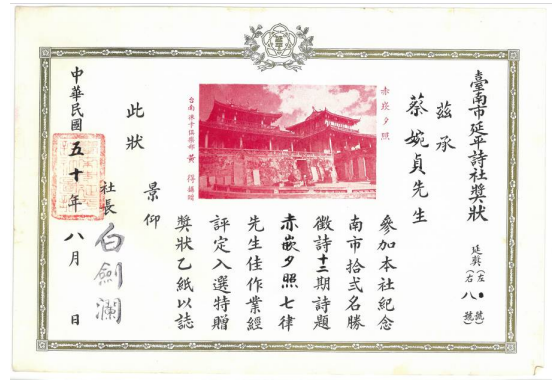 延平
臺南市延平詩社獎狀
延獎(左●號
(右八號)
茲承
蔡婉貞先生
參加本社紀念
南市拾弍名勝
徵詩十二期詩題
赤嵌夕照七律
先生佳作業經
評定入選特贈
獎狀乙紙以誌
景仰
此狀
赤崁夕照
黃得
社長
白劍瀾
中華民國五十年八月 日